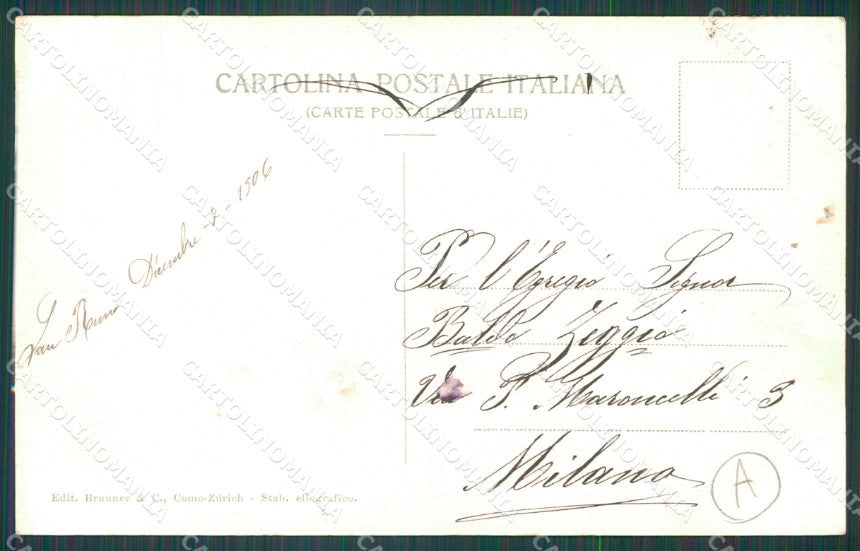 CARTOLINA POSTALE ITALIANA
(CARTE POSTALE D'ITALIE)
San Remo Dicembre - 1906
Per l'Egregio Signor
Baldo Zeggio
Via P. Maroncelli 3
Milano
A
Edit. Brunner & C., Como-Zürich - Stab. eliografico.
CARTOLINOMANIA